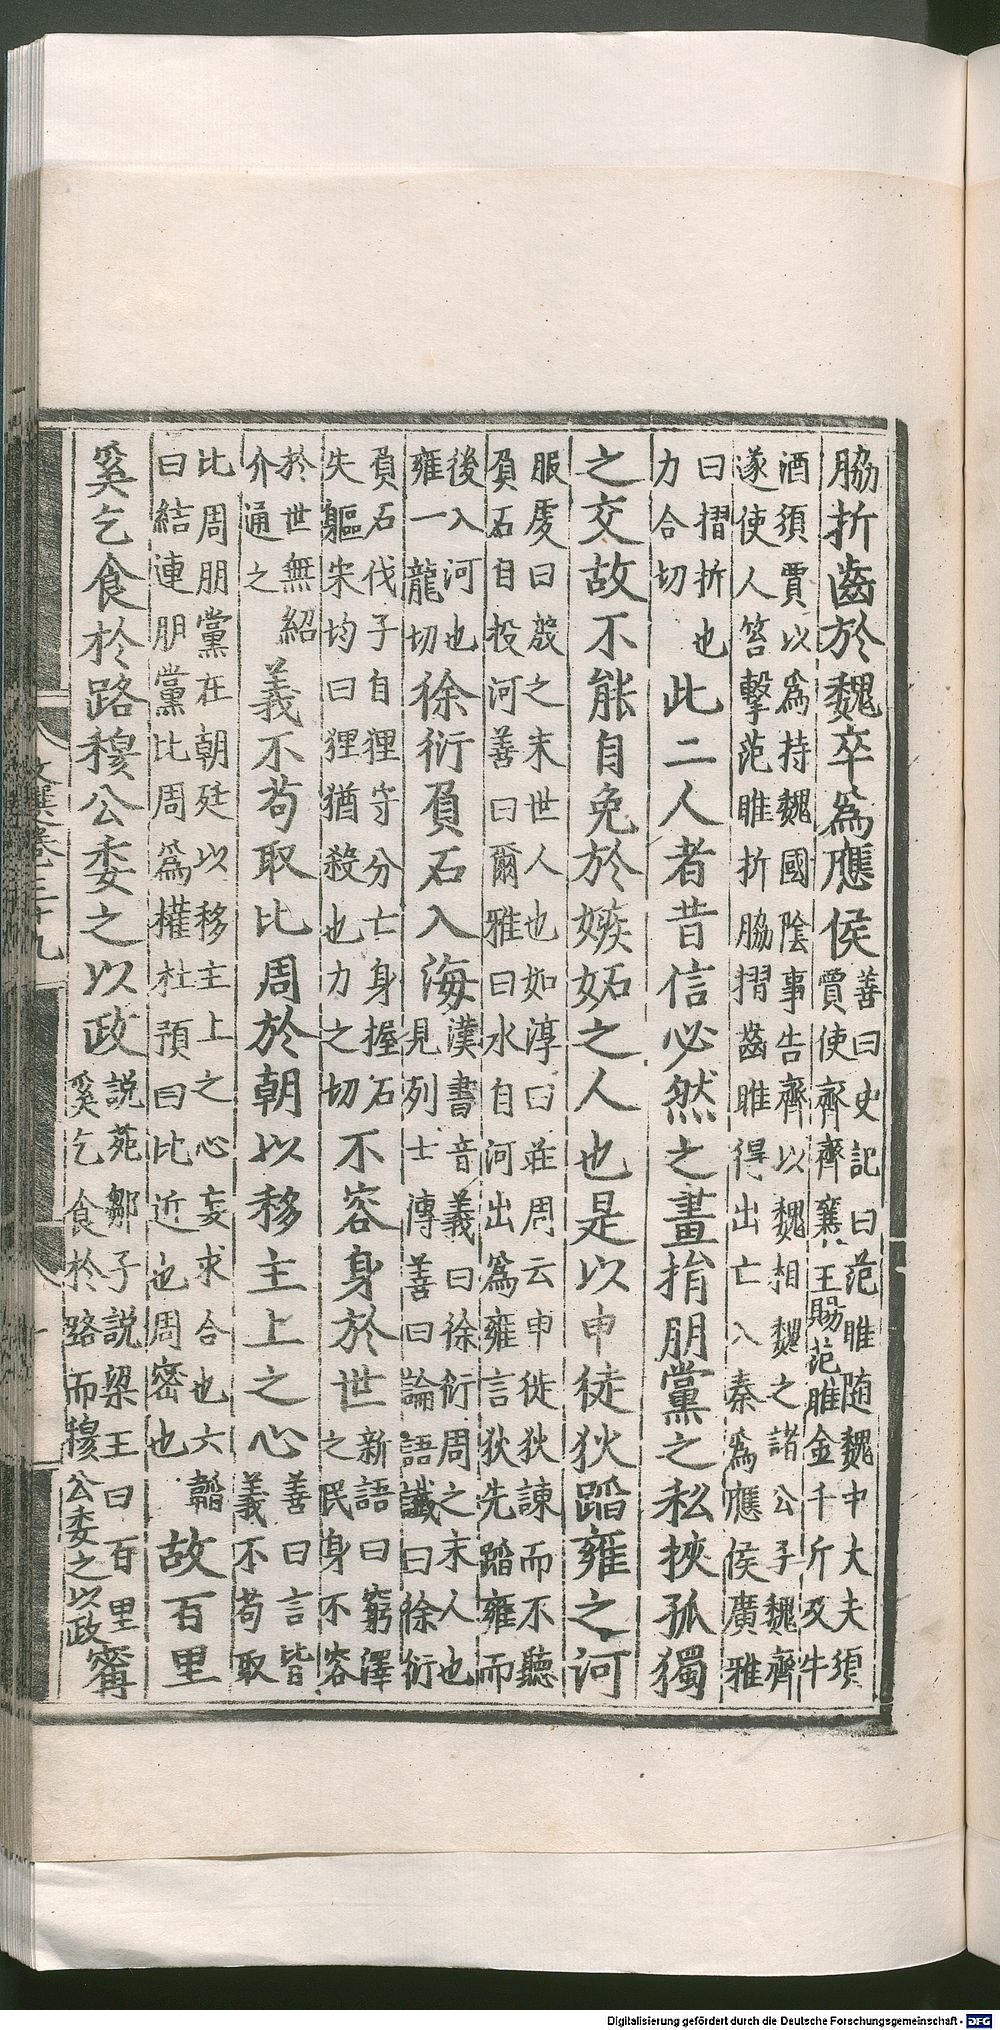 脇折齒於魏卒為應侯善曰史記曰范睢隨魏中大夫須
賈使齊齊襄王賜范睢金千斤及牛
酒須賈以為持魏國陰事告齊以魏相魏之諸公子魏齊
遂使人笞擊范睢折脇摺齒睢得出亡入秦為應侯廣雅
曰摺折也
力合切此二人者昔信必然之畫捐朋黨之私挾孤獨
之交故不能自免於嫉妬之人也是以申徒狄蹈雍之河
服虔曰殷之末世人也如淳曰莊周云申徙狄諫而不聽
負石自投河善曰爾雅曰水自河出為雍言狄先蹈雍而
後入河也
雍一龍切徐衍負石入海漢書音義曰徐衍周之末人也
見列士傳善曰論語讖曰徐衍
負石伐子自狸守分亡身握石
失軀宋均曰狸猶殺也力之切不容身於世新語曰窮澤
之民身不容
於世無紹
介通之義不苟取比周於朝以移主上之心善曰言皆
義不苟取
比周朋黨在朝廷以移主上之心妄求合也六韜
曰結連朋黨比周為權杜預曰比近也周密也故百里
奚乞食於路穆公委之以政說苑鄒子說梁王曰百里
奚乞食於路而穆公委之以政甯
文選卷三十九
十
Digitalisierung gefördert durch die Deutsche Forschungsgemeinschaft - DFG